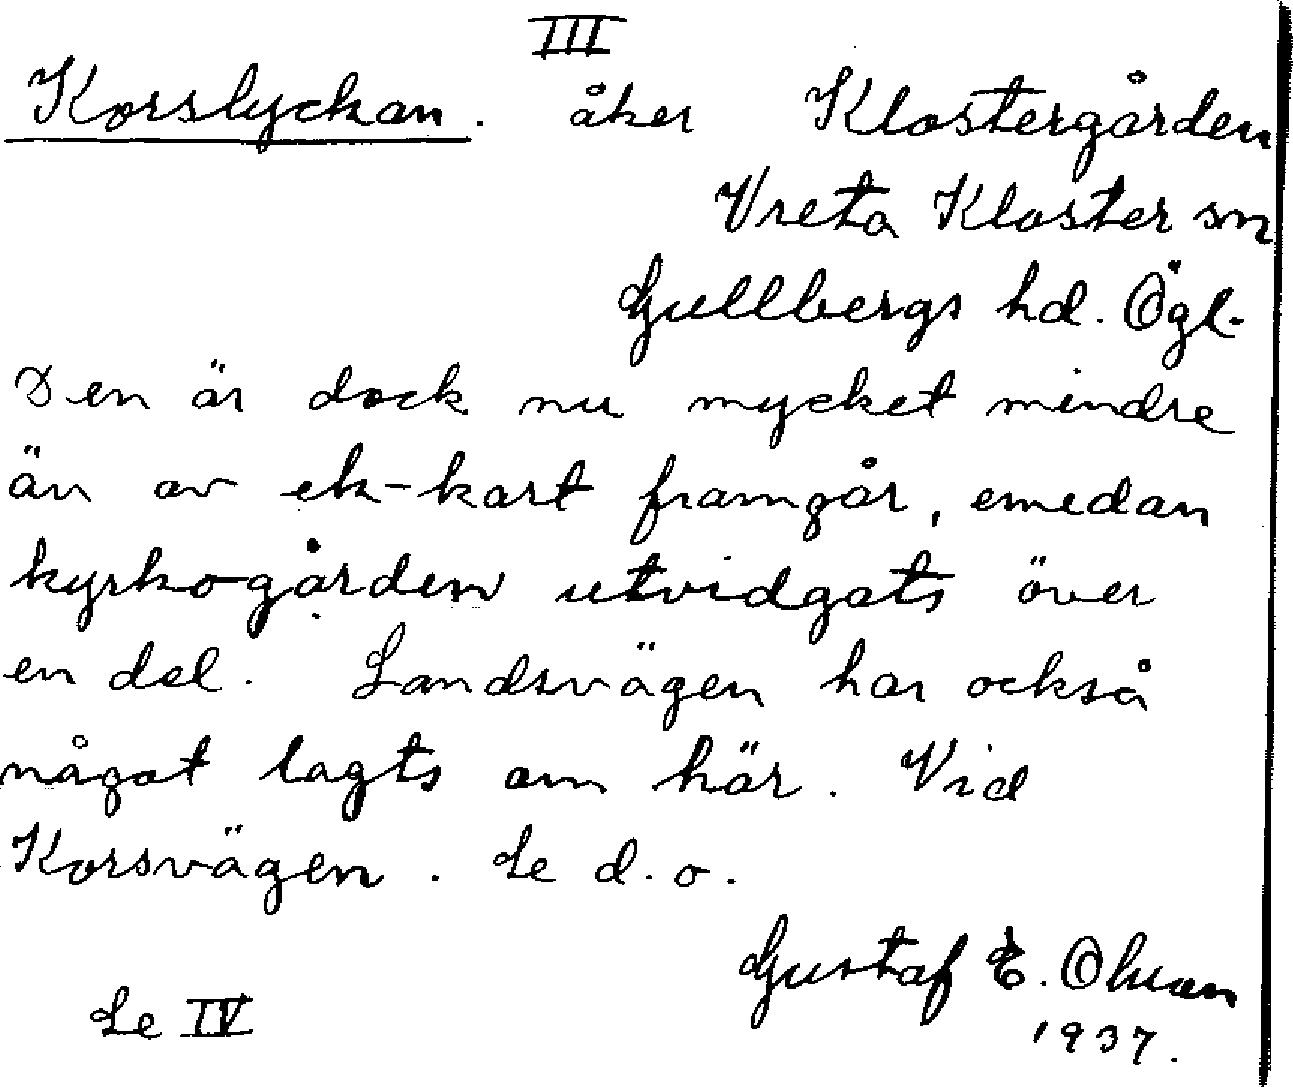 III
Korslyckan. åker Klostergården
Vreta Kloster sn
Gullbergs hd. Ögl.
Den är dock nu mycket mindre
än av ek-kart framgår, emedan
kyrkogården utvidgats över
en del. Landsvägen har också
något lagts om här. Vid
Korsvägen. Se d. o.
Gustaf E. Olsson
Se IV
1937.